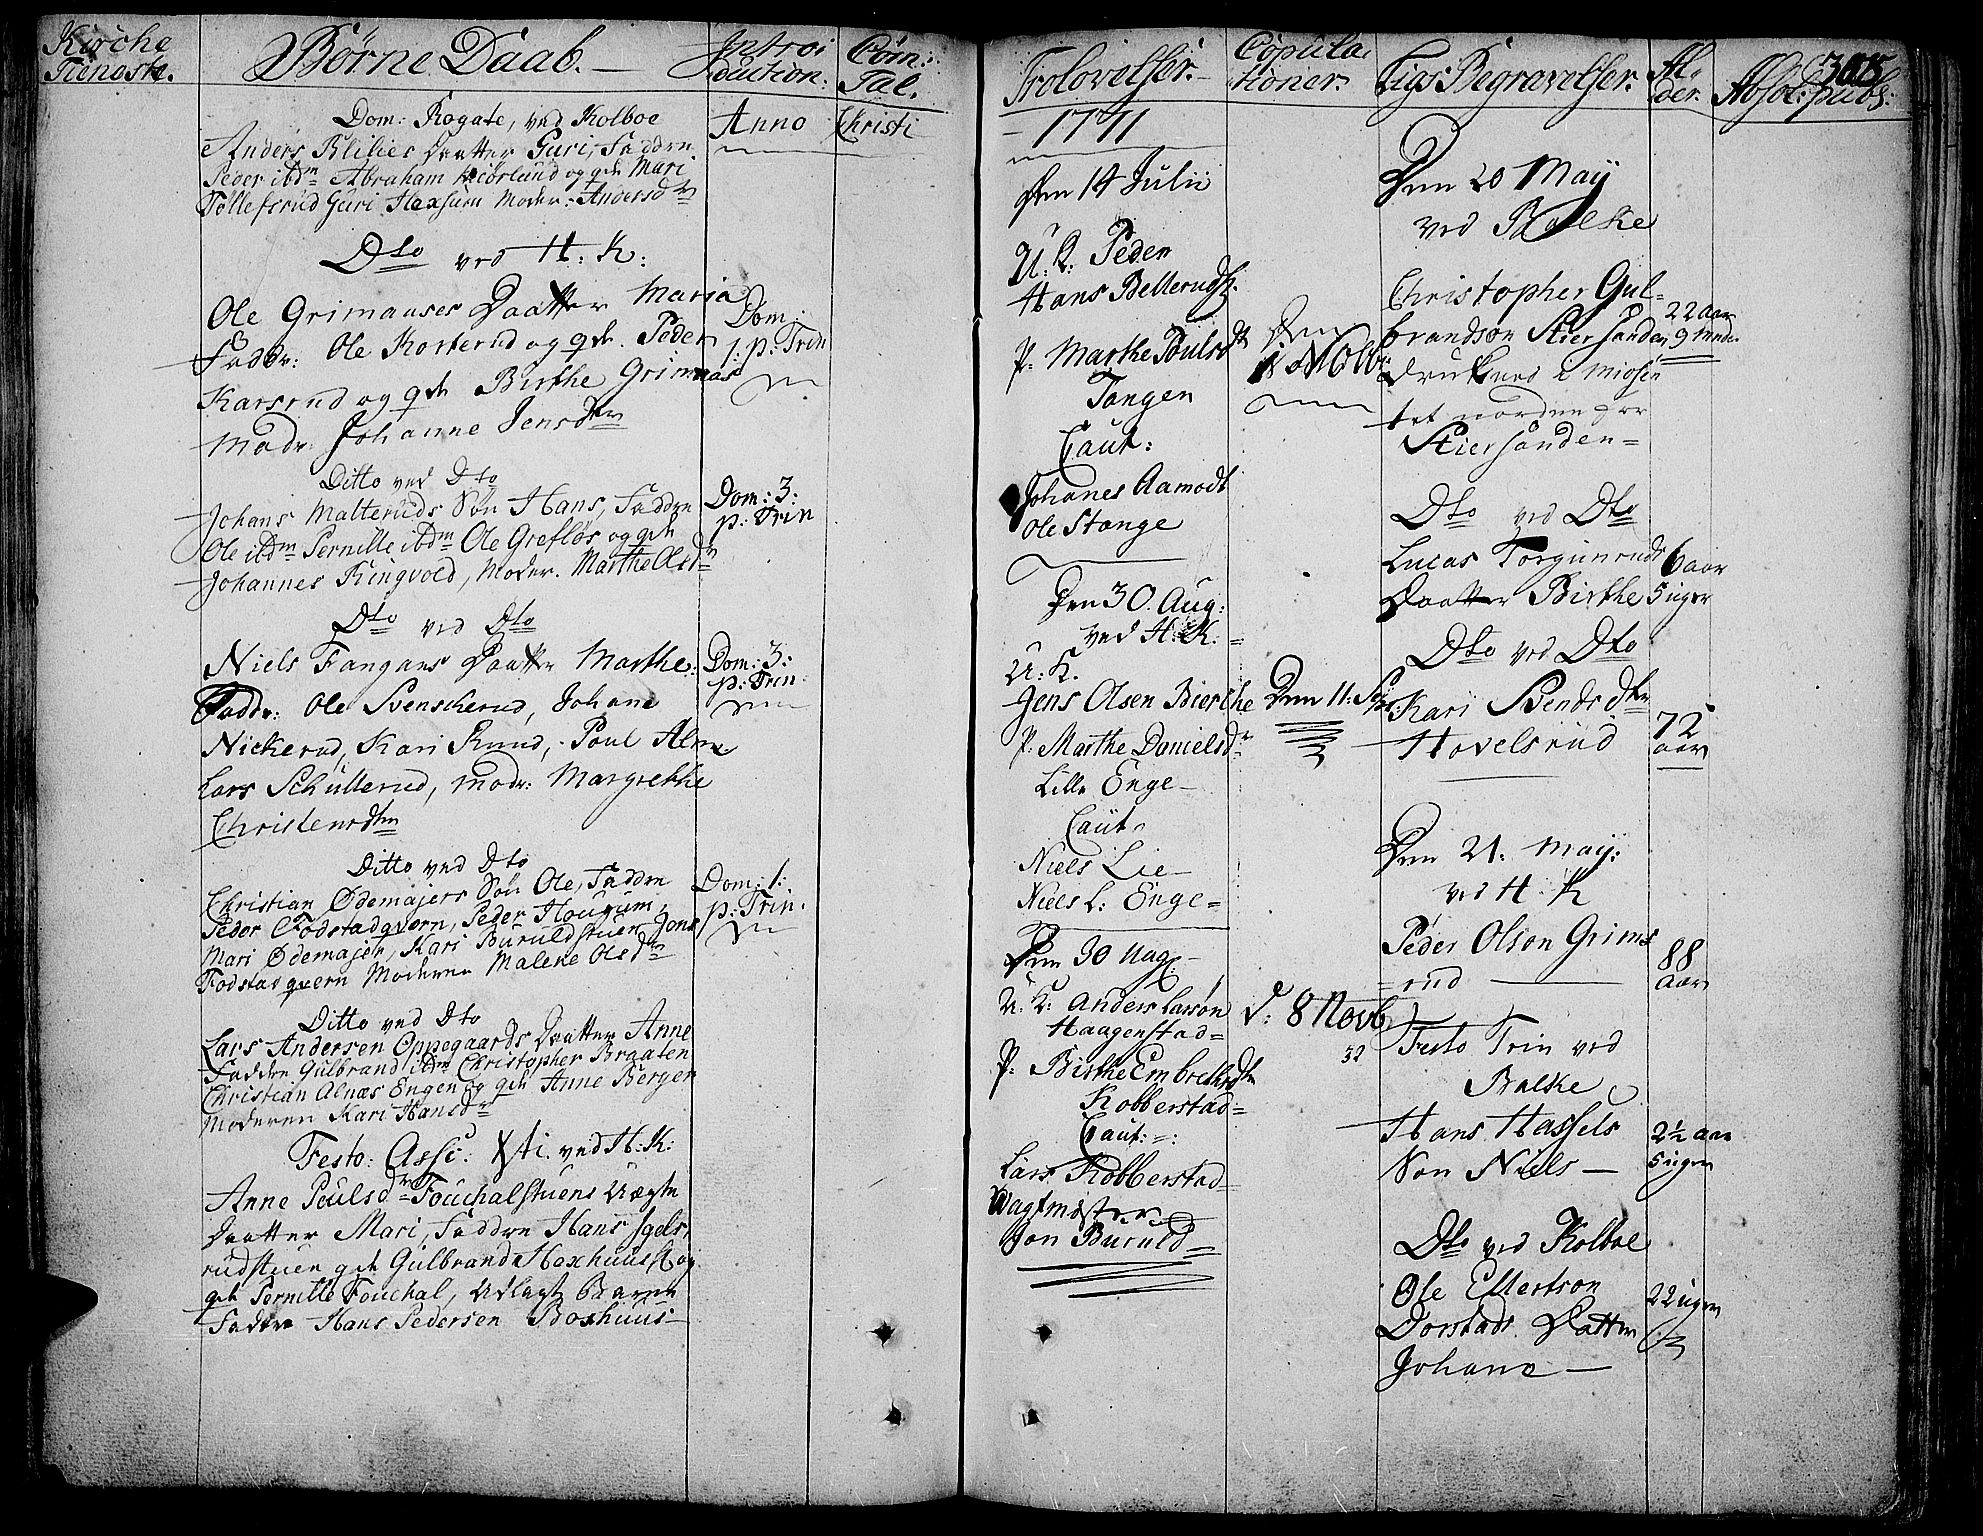 Kirche
Tieneste.
Børne Daab.
Introi
duction:
Com:
Tal.
Dom: Rogate, ved Kolboe
Anno
Christi
Anders Blilies Daatter Guri, Faddre
Peder ibdm Abraham og gdt Mari
Tollefsrud Guri Hexsum Moder: Andersdtr
Dto ved H: K:
Ole Grimaases Daatter Maria
Faddr: Ole Korterud og gdt. Peder
Karsrud og gdt Birthe Grimaas
Modr. Johanne Jensdtr
Dom:
1: p: Trin
Ditto ved Dto
Johans Malteruds Søn Hans, Faddre
Ole ibdm Pernille ibdm Ole Grefløs og gdt
Johannes Ringvold, Moder. Marthe Olsdr
Dom: 3:
p: Trin
Dto ved Dto
Niels Fangans Daatter Marthe:
Faddr: Ole Svenskerud, Johane
Nickerud, Kari Rund, Poul Alm
Lars Schullerud, Modr: Margrethe
Christensdtr
Dom: 3:
p: Trin:
Ditto ved Dto
Christian Ødemajers Søn Ole, Faddre
Peder Fodstadqvern, Peder Housum,
Mari Ødemajer, Kari Buruldstuen Jens
Fodstadqvern Moderen Malene Olsdr
Dom: 1:
p: Trin.
Ditto ved Dto
Lars Andersen Oppegaards Daatter Anne
Faddre Gulbrand ibdm Christopher Braaten
Christian Alnæs Engen og gdt Anne Bergen
Moderen Kari Hansdr
Festo: Asse: Xti. ved H: K:
Anne Poulsdr Fouchalstuens Uægte
Daatter Mari, Faddre Hans Igels
rudstuen gdt Gulbrand Hoxhuus og
gdt Pernille Fouchal, Udlagt Barne
Fader Hans Pedersen Boxhuus
Trolovelser.
Copula
tioner.
Ligs Begravelser.
Al
der.
Absol: pub:
1771
Den 14 Julii
U: K: Peder
Hans Bellerudsz.
P. Marthe Poulsdr
Tangen
Caut:
Johanes Aamodt
Ole Stange
Den
Den 30. Aug:
ved H: K:
U: K.
Jens Olsen Bierche
P. Marthe Danielsdr
Lille Enge
Caut
Niels Lie
Niels L: Enge
Den 11: Sept:
Den 30 Aug:
U: K: Anders Larsøn
Haagenstad
P. Birthe Embrethsdtr
Kobberstad
Caut:
Lars Kobberstad
Wagtmæster
Jon Buruld
d: 8 Novb
32
Den 20 May
ved Balke
Christopher Gul-
brandsøn Stiersanden
22 aar
9 Mnd.
Druknede i Miosen
tet norden for
Stiersanden
Dto ved Dto
Lucas Torgunruds
Daatter Birthe
6 aar
5 uger
Dto ved Dto
Kari Svendsdtr
Hovelsrud
72
aar
Den 21. May:
ved H K
Peder Olson Grims
rud
88
aar
Festo Trin ved
Balke
Hans Hassels
Søn Niels
2½ aar
5 uger
Dto ved Kolboe
Ole Ellertson
Dorstads Datter
Johane
22 uger